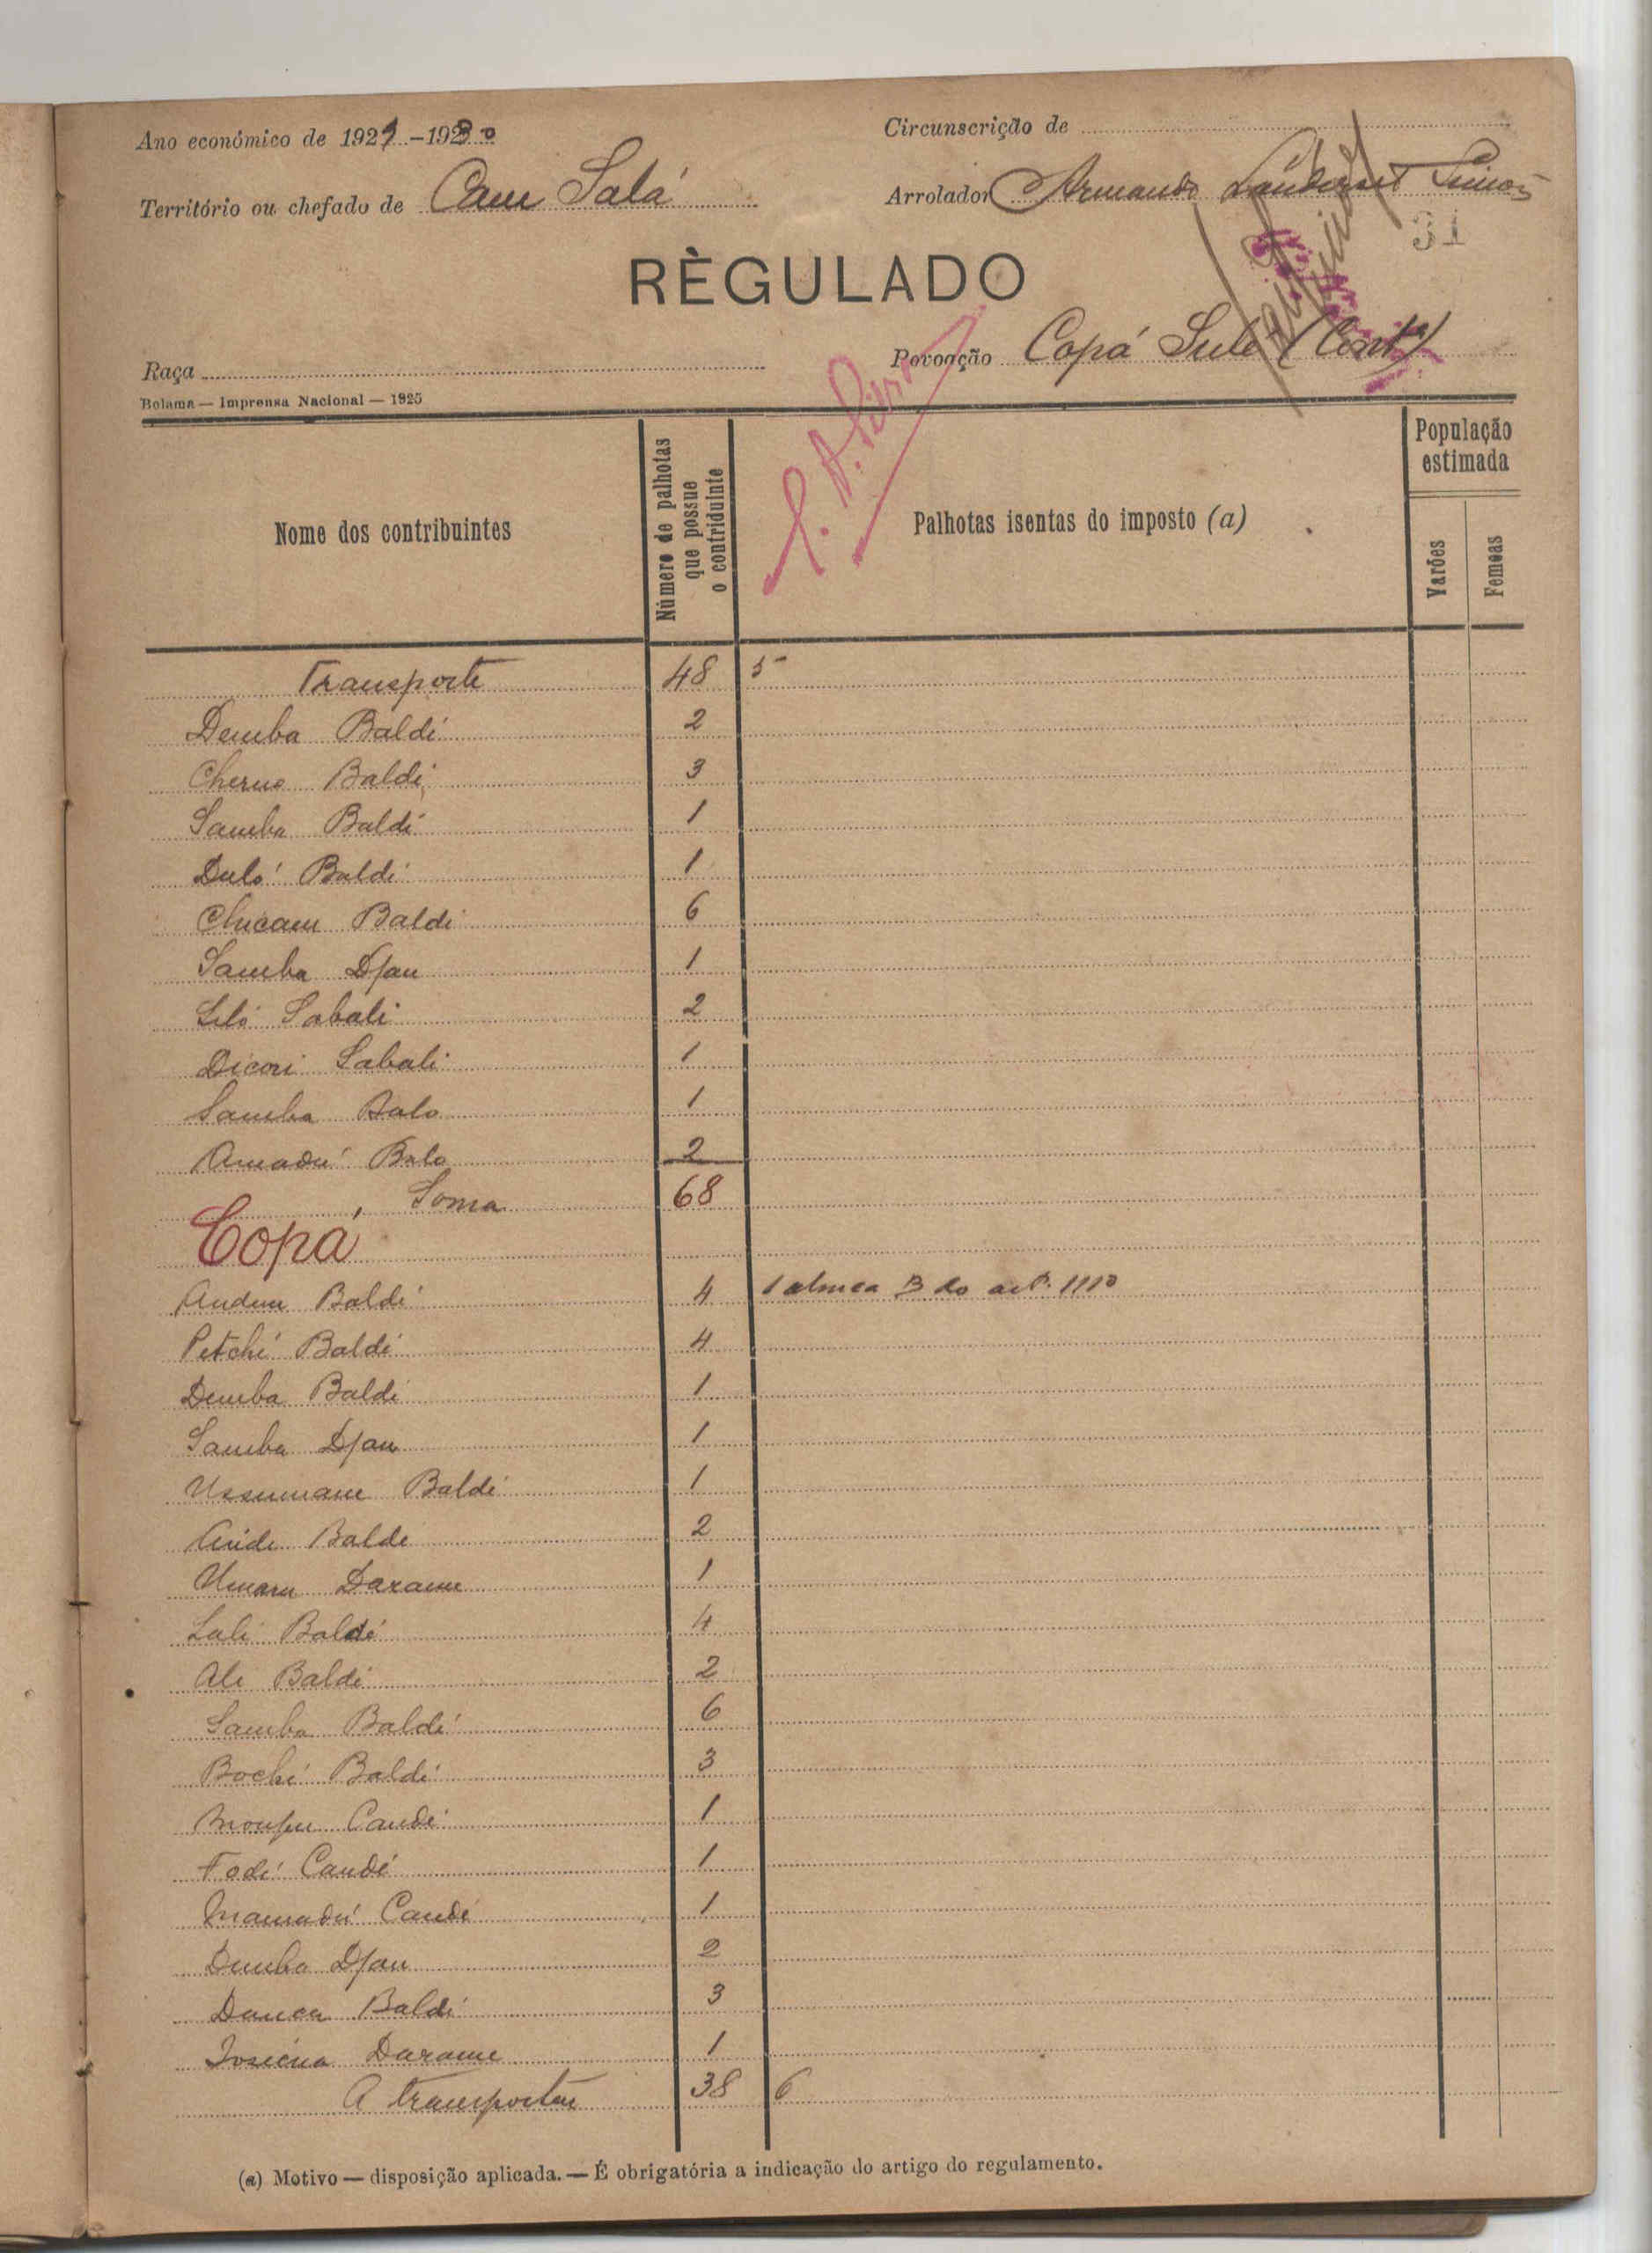 Ano económico de 1929-1930
Circunscrição de
Território ou chefado de Cam Salá
Arrolador Armando
31
RÈGULADO
Raça
Povoação Copá Sulé (Cont.)
Bolama — Imprensa Nacional — 1925
Nome dos contribuintes
Número de palhotas que possue o contriduinte
Palhotas isentas do imposto (a)
População estimada
Varões
Femeas
Transporte 48 5
Demba Baldé 2
Cherno Baldé 3
Samba Baldé 1
Duló Baldé 1
Chicam Baldé 6
Samba Djau 1
Liló Sabali 2
Dicori Sabali 1
Samba Balo 1
Amadú Balo 2
Soma 68
Copá
Baldé 4 1 alinea B do artº. 111º
Petché Baldé 4
Demba Baldé 1
Samba Djau 1
Ussumane Baldé 1
Balde 2
Umaru Darame 1
Lali Baldé 4
Ali Baldé 2
Samba Baldé 6
Boché Baldé 3
Candé 1
Fodé Candé 1
Mamadú Candé 1
Demba Djau 2
Baldé 3
Darame 1
A transportar 38 6
(a) Motivo — disposição aplicada. — É obrigatória a indicação do artigo do regulamento.